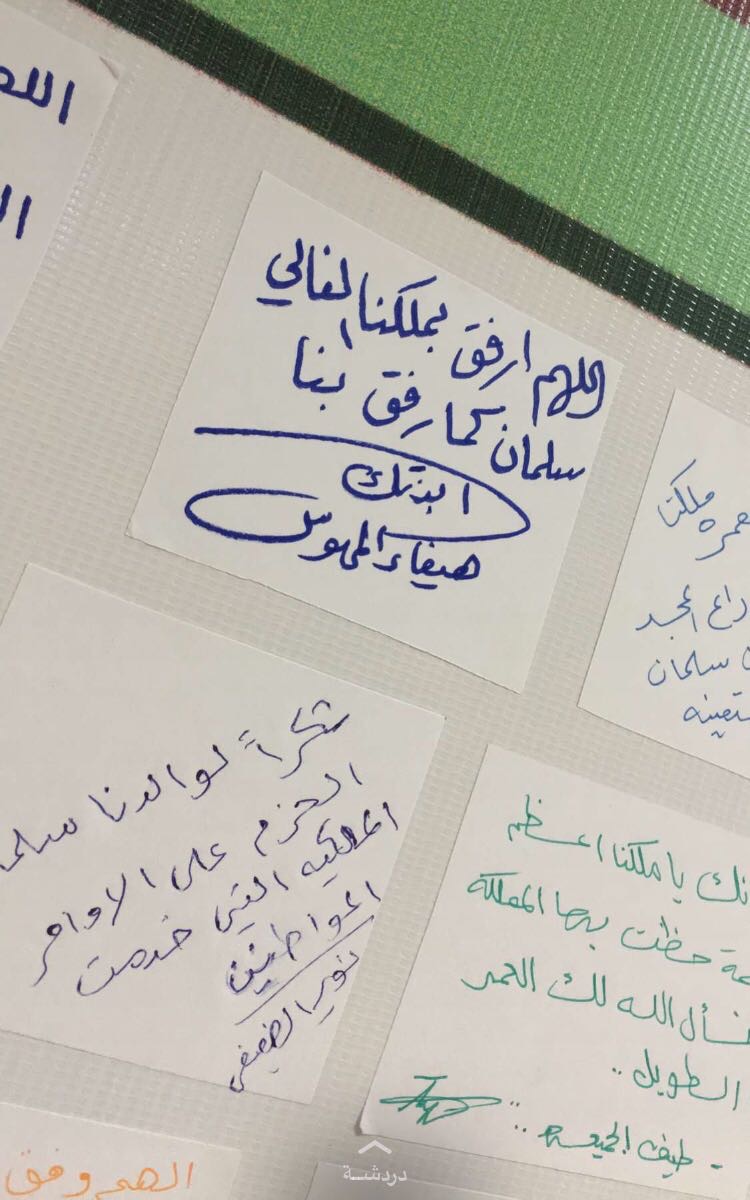 اللهم ارفق بملكنا الغالي
سلمان كما رفق بنا
ابنتك
هيفاء المهوس
ملكنا
المجد
سلمان
شكراً لوالدنا سلما
الحزم على الاوامر
الملكيه التي خدمت
المواطنين
نوير
نك يا ملكنا اعظم
حظت بها المملكة
نسأل الله لك العمر
الطويل ..
- طيف الجميعه ..
اللهم وفق
دردشة